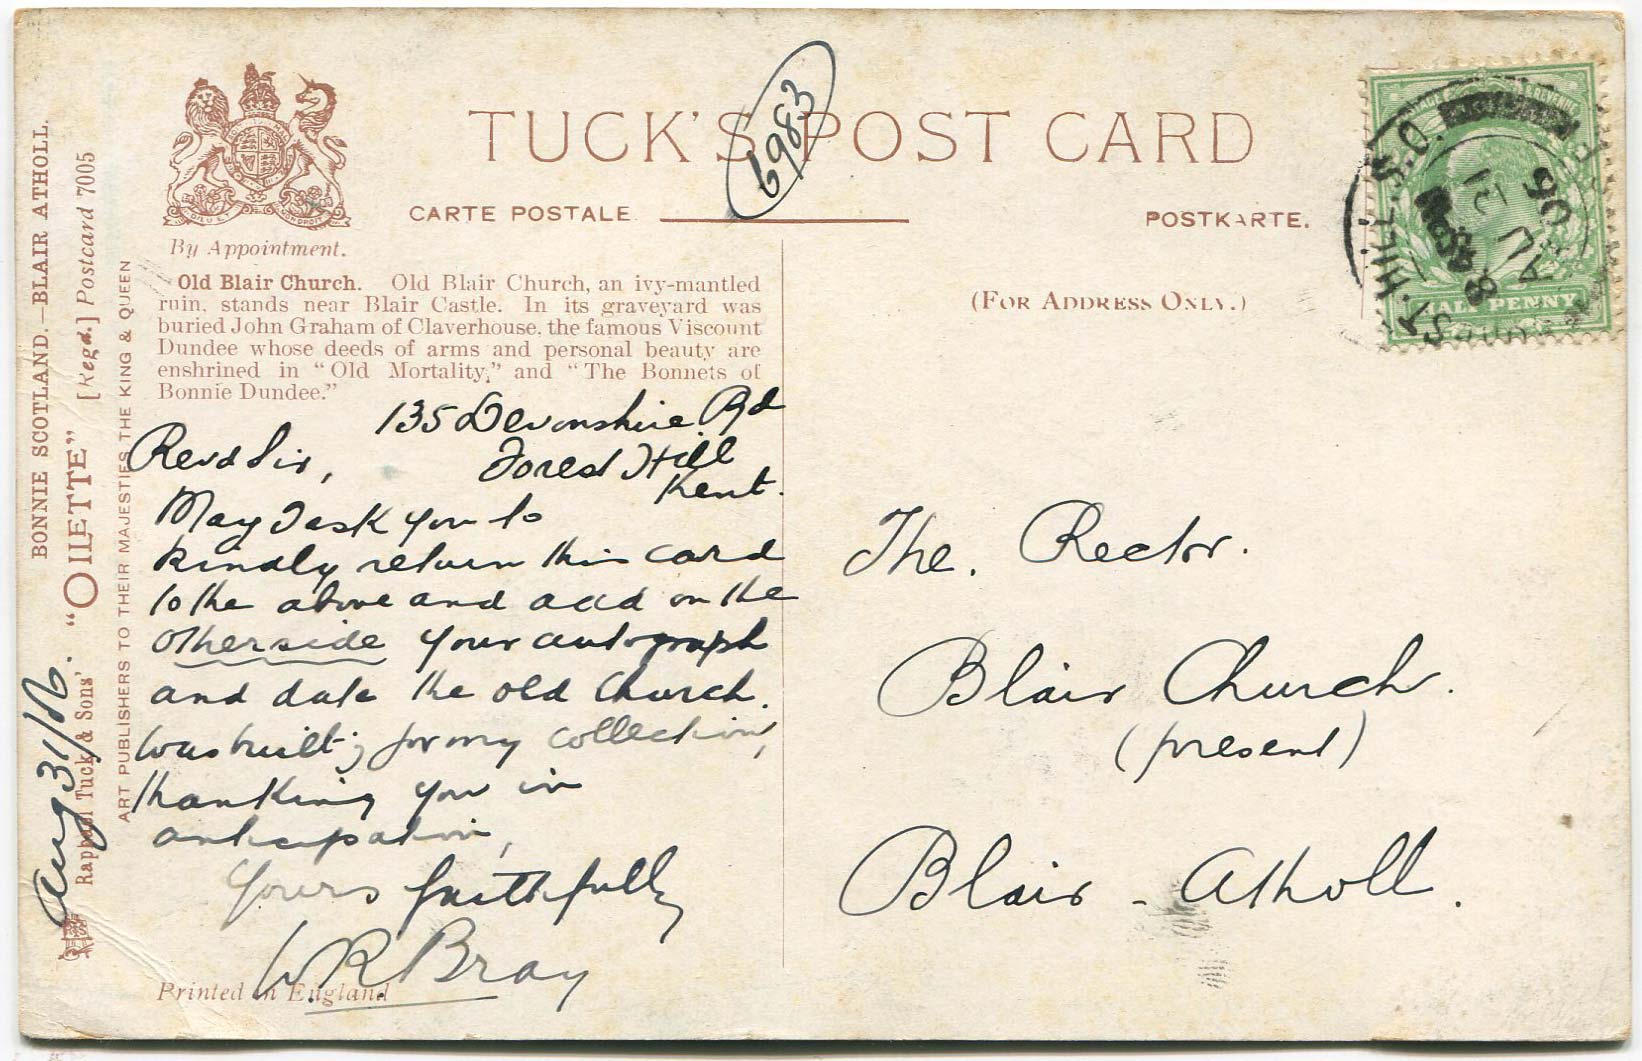 TUCK'S POST CARD
6983
CARTE POSTALE
POSTKARTE.
By Appointment.
(FOR ADDRESS ONLY.)
Old Blair Church. Old Blair Church, an ivy-mantled
ruin, stands near Blair Castle. In its graveyard was
buried John Graham of Claverhouse, the famous Viscount
Dundee whose deeds of arms and personal beauty are
enshrined in "Old Mortality," and "The Bonnets of
Bonnie Dundee."
135 Devonshire Rd
Forest Hill
Kent.
Revd Sir,
May I ask you to
kindly return this card
to the above and add on the
otherside your autograph
and date the old Church.
was built; for my collection,
thanking you in
anticipation,
Yours faithfully
W R Bray
Printed in England
The. Rector.
Blair Church.
(present)
Blair - Atholl.
BONNIE SCOTLAND.—BLAIR ATHOLL.
Raphael Tuck & Sons' "OILETTE" [Regd.] Postcard 7005
ART PUBLISHERS TO THEIR MAJESTIES THE KING & QUEEN
Aug 31/06.
ST. HILL. S.O.
AU 31
06
HALFPENNY